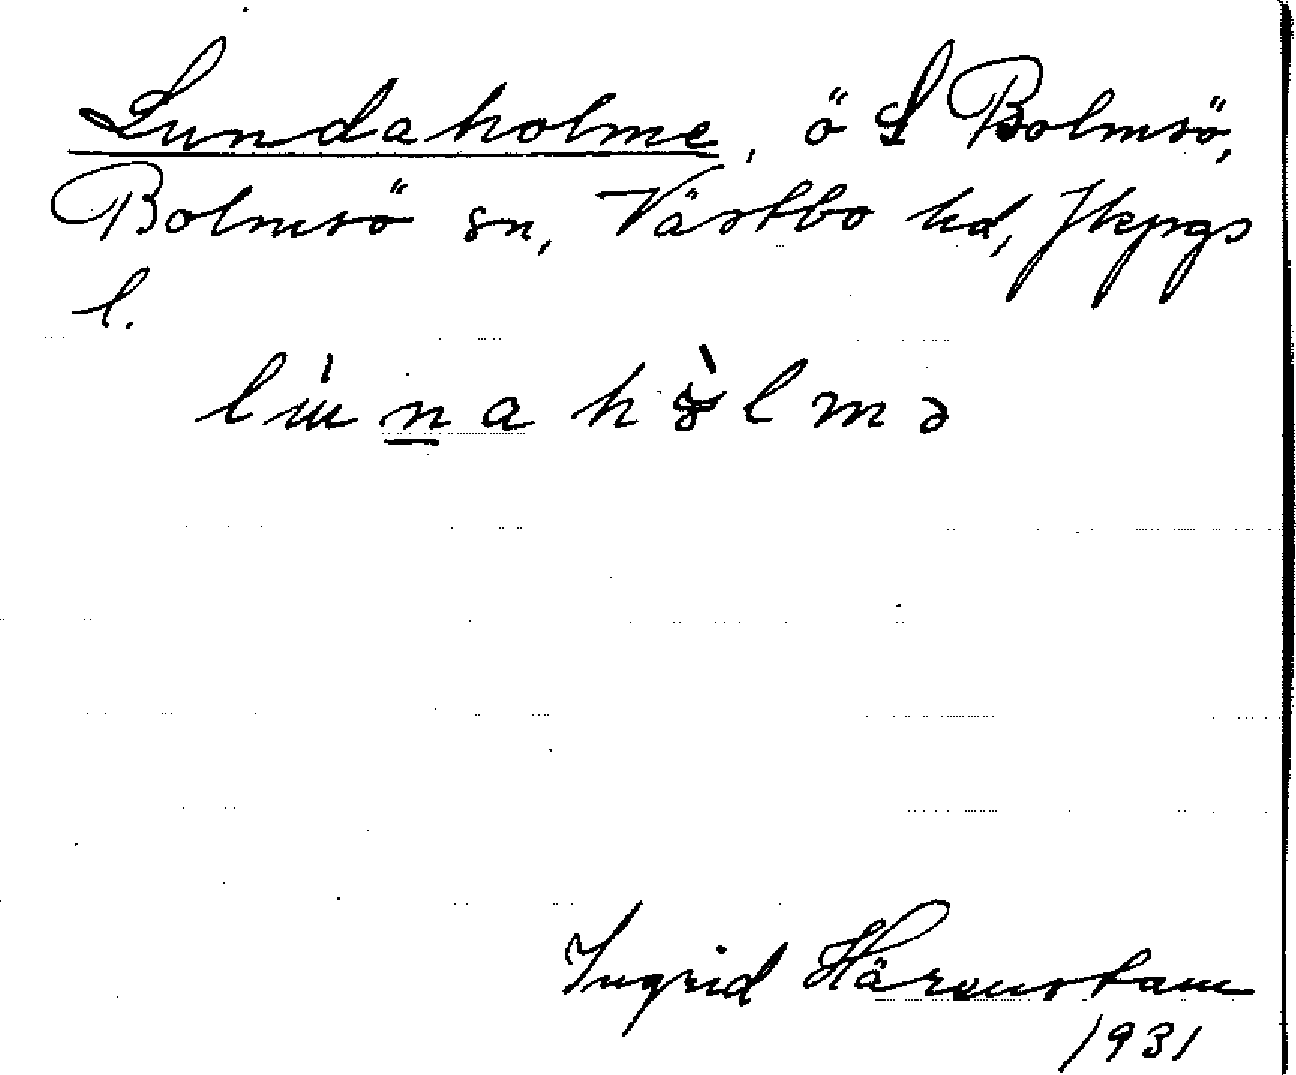 Lundaholme, ö S Bolmsö,
Bolmsö sn, Västbo hd, Jkpgs
l.
Ingrid Härenstam
1931